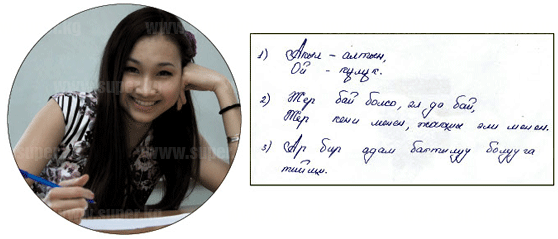 1) Акыл - алтын,
Ой - күлүк.
2) Жер бай болсо, эл да бай,
Жер кени менен, жакшы эли менен.
3) Ар бир адам бактылуу болууга
тийиш.
www.super.kg